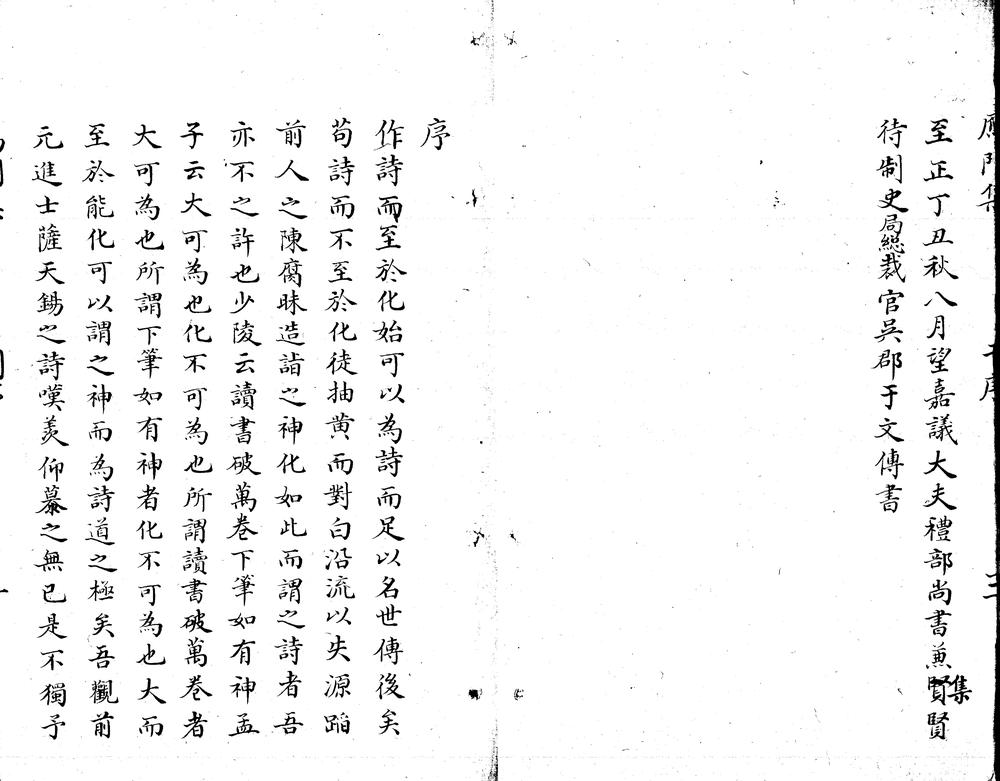 至正丁丑秋八月望嘉議大夫禮部尚書兼賢賢
集
待制史局總裁官吳郡于文傳書
序
作詩而至於化始可以為詩而足以名世傳後矣
苟詩而不至於化徒抽黄而對白沿流以失源蹈
前人之陳腐昧造詣之神化如此而謂之詩者吾
亦不之許也少陵云讀書破萬卷下筆如有神孟
子云大可為也化不可為也所謂讀書破萬卷者
大可為也所謂下筆如有神者化不可為也大而
至於能化可以謂之神而為詩道之極矣吾觀前
元進士薩天錫之詩嘆羨仰慕之無已是不獨予